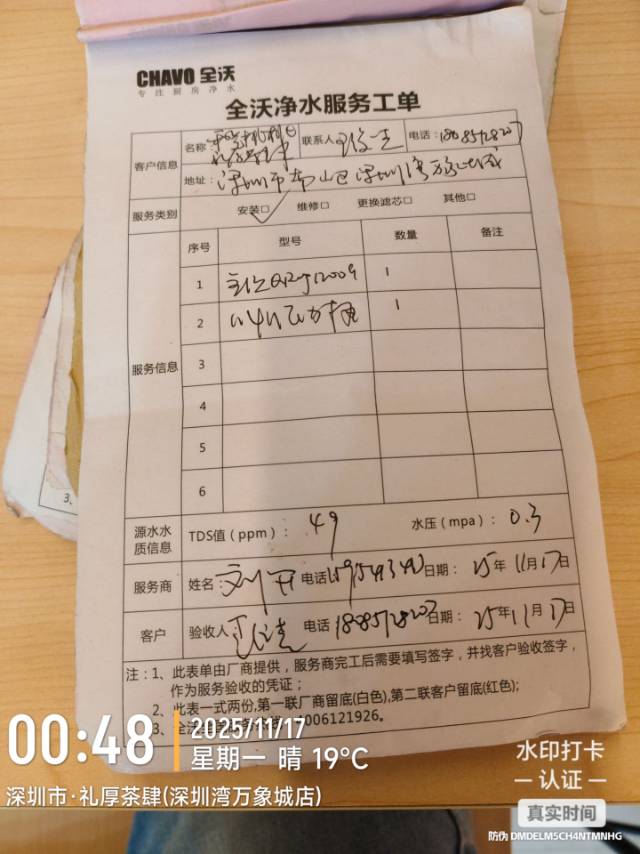 CHAVO 全沃
专注厨房净水
全沃净水服务工单
客户信息 名称： 联系人 电话：18885728207
地址：深圳市南山区深圳湾万象城
服务类别 安装□ 维修□ 更换滤芯□ 其他□
服务信息 序号 型号 数量 备注
1 1
2 11G压力桶 1
3
4
5
6
源水水质信息 TDS值（ppm）： 49 水压（mpa）： 0.3
服务商 姓名： 电话 日期： 25年11月17日
客户 验收人 电话 18885728207 日期： 25年11月17日
注：1、此表单由厂商提供，服务商完工后需要填写签字，并找客户验收签字，
作为服务验收的凭证；
2、此表一式两份,第一联厂商留底(白色),第二联客户留底(红色);
3、全沃 006121926。
3、
00:48 2025/11/17
星期一 晴 19℃
深圳市·礼厚茶肆(深圳湾万象城店)
水印打卡
认证
真实时间
防伪 DMDELM5CH4NTMNHG